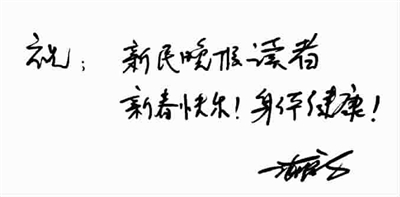 祝：新民晚报读者
新春快乐！身体健康！